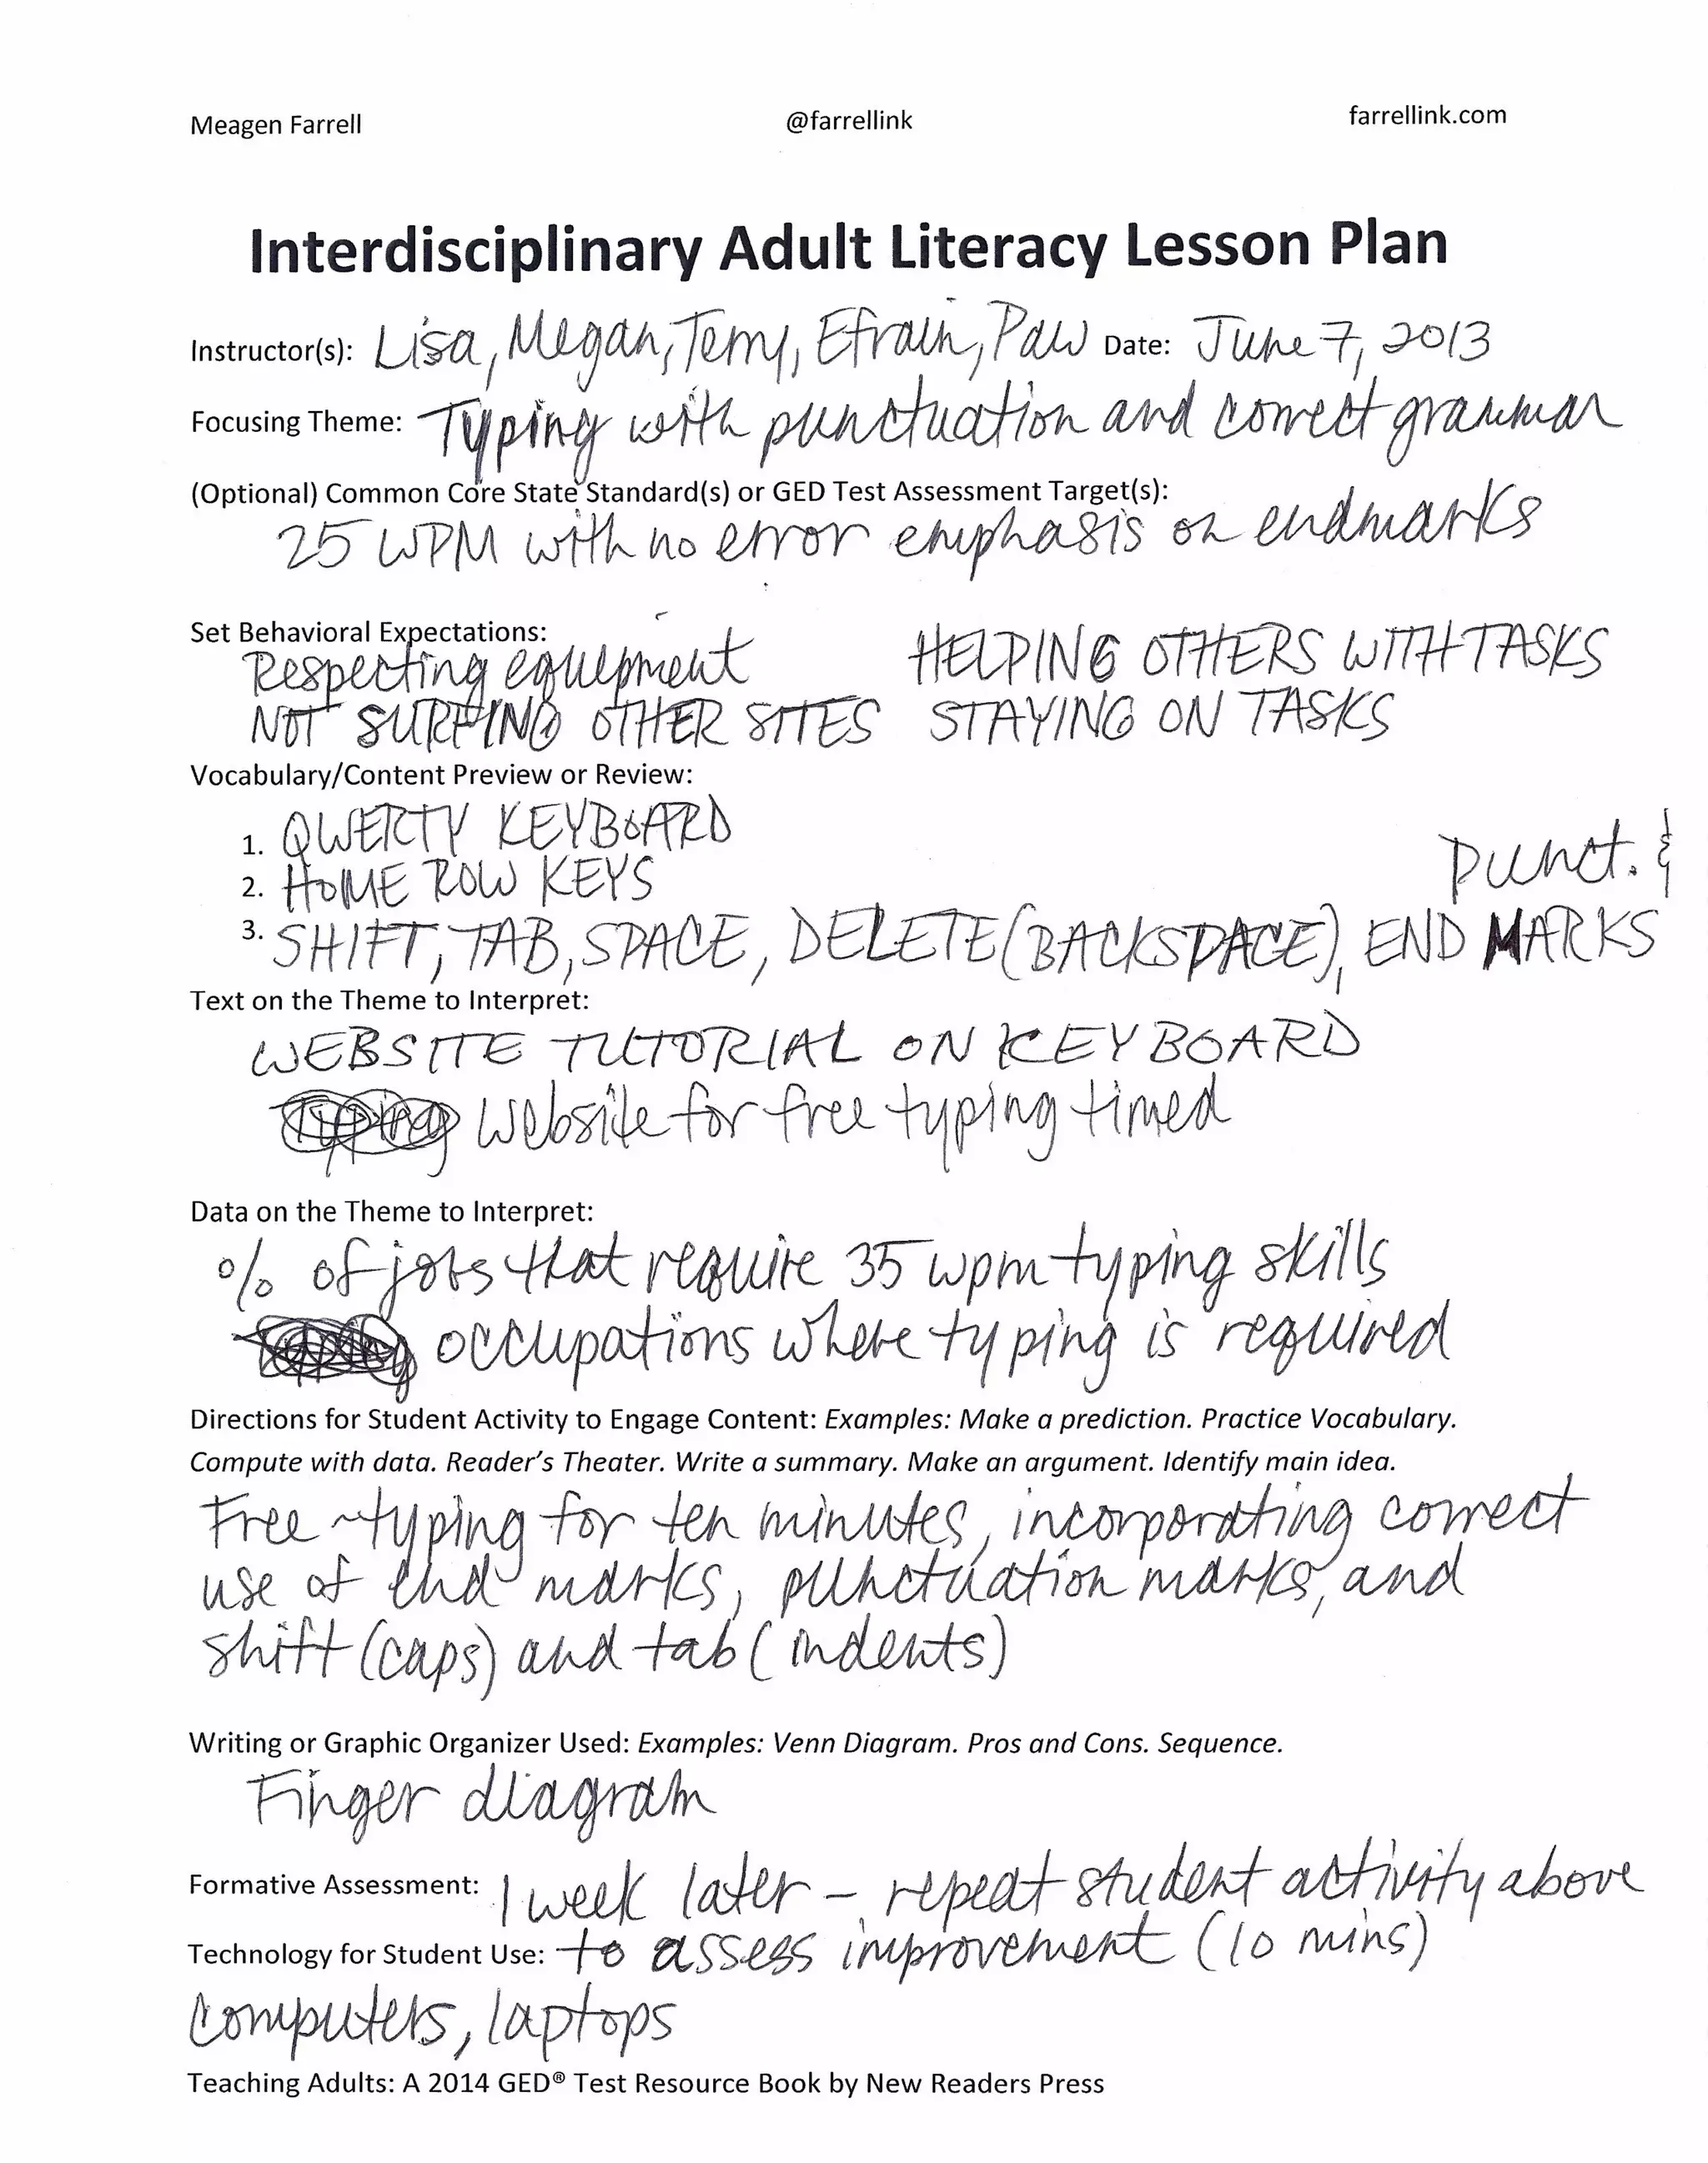 Meagen Farrell @farrellink farrellink.com
Interdisciplinary Adult Literacy Lesson Plan
Instructor(s): Lisa, Megan, Terry, Efrain, Paw Date: June 7, 2013
Focusing Theme: Typing with punctuation and correct grammar
(Optional) Common Core State Standard(s) or GED Test Assessment Target(s):
25 WPM with no error emphasis on endmarks
Set Behavioral Expectations:
Respecting equipment HELPING OTHERS WITH TASKS
NOT SURFING OTHER SITES STAYING ON TASKS
Vocabulary/Content Preview or Review:
1. QWERTY KEYBOARD
2. HOME ROW KEYS
punct. &
3. SHIFT, TAB, SPACE, DELETE (BACKSPACE), END MARKS
Text on the Theme to Interpret:
WEBSITE TUTORIAL ON KEYBOARD
website for free typing timed
Data on the Theme to Interpret:
% of jobs that require 35 wpm typing skills
occupations where typing is required
Directions for Student Activity to Engage Content: Examples: Make a prediction. Practice Vocabulary.
Compute with data. Reader's Theater. Write a summary. Make an argument. Identify main idea.
Free-typing for ten minutes, incorporating correct
use of end marks, punctuation marks, and
shift (caps) and tab (indents)
Writing or Graphic Organizer Used: Examples: Venn Diagram. Pros and Cons. Sequence.
Finger diagram
Formative Assessment: 1 week later - repeat student activity above
Technology for Student Use: to assess improvement (10 mins)
Computers, laptops
Teaching Adults: A 2014 GED® Test Resource Book by New Readers Press